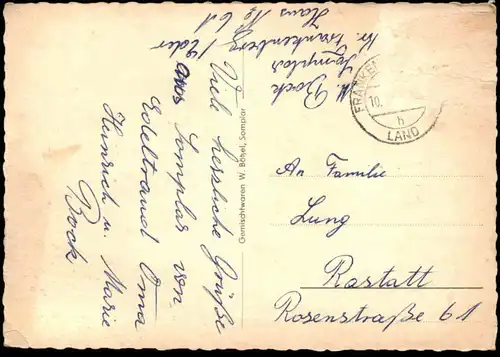 Viele herzliche Grüße
aus Somplar von
Edeltraud Oma
Heinrich u. Marie
Bock
H. Bock
Somplar
Kr. Frankenberg/Eder
Haus Nr 61
Gemischtwaren W. Böhel, Somplar
FRANKEN
10.
h
LAND
An Familie
Lung
Rastatt
Rosenstraße 61